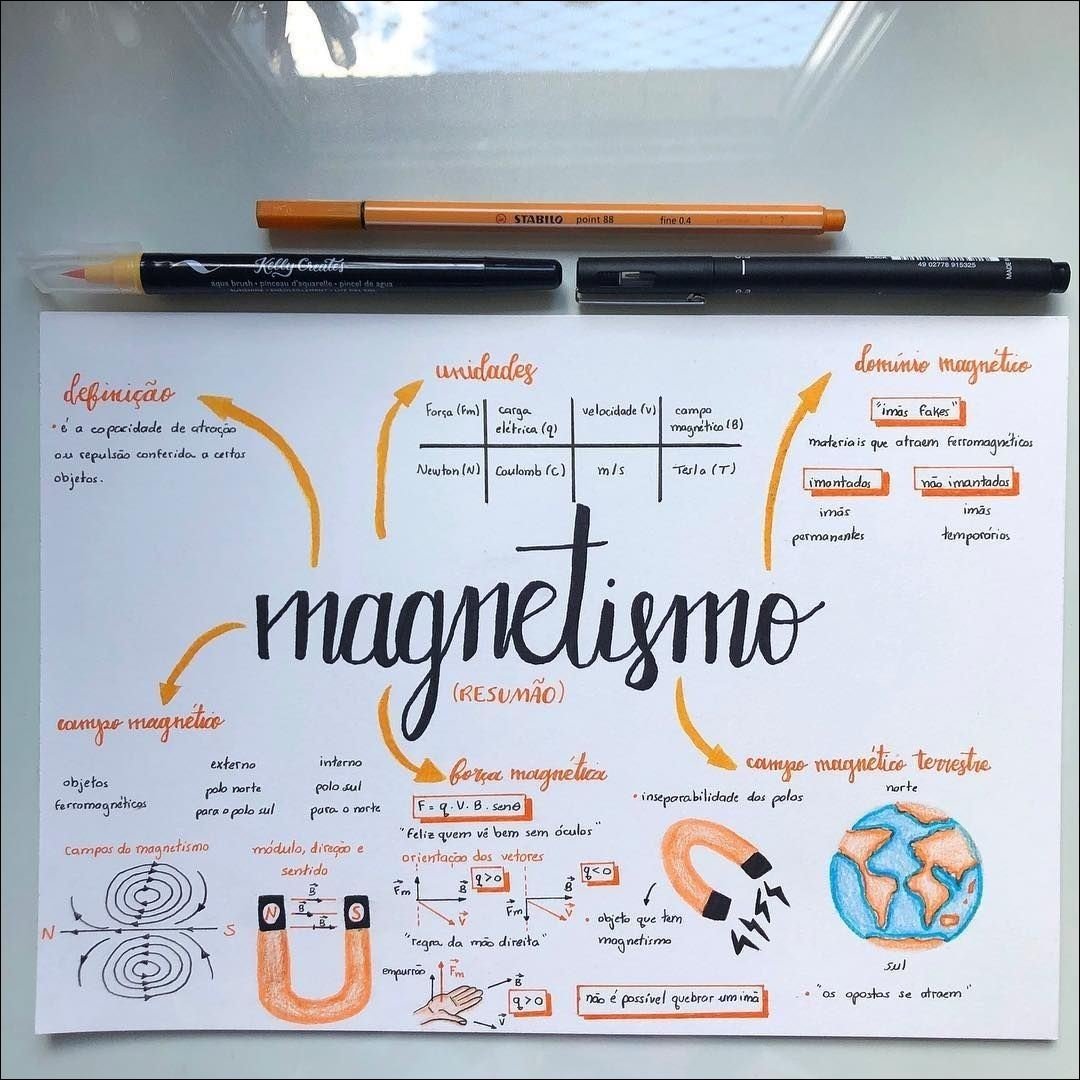 STABILO point 88 fine 0.4
Kelly Creates
aqua brush • pinceau d'aquarelle • pincel de agua
49 02778 915325
definição
• é a capacidade de atração
ou repulsão conferida a certos
objetos.
unidades
Força (Fm) carga elétrica (q) velocidade (V) campo magnético (B)
Newton (N) Coulomb (C) m/s Tesla (T)
domínio magnético
"imãs fakes"
materiais que atraem ferromagnéticos
imantados não imantados
imãs permanentes
imãs temporários
magnetismo
(RESUMÃO)
campo magnético
objetos
ferromagnéticos
externo
polo norte
para o polo sul
interno
polo sul
para o norte
campos do magnetismo
N S
módulo, direção e
sentido
B
B
B
N S
força magnética
F = q . V . B . senθ
"Feliz quem vê bem sem óculos"
orientação dos vetores
Fm B V q>0
B Fm V q<0
"regra da mão direita"
empurrão Fm B V q>0
campo magnético terrestre
• inseparabilidade dos polos
• objeto que tem
magnetismo
não é possível quebrar um imã
norte
sul
• "os opostos se atraem"